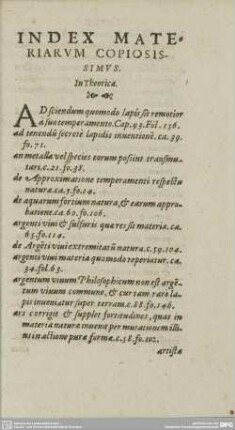 INDEX MATE-
RIARVM COPIOSIS-
SIMVS.
In Theorica.
AD sciendum quomodo lapis sit remotior
a suo temperamento. Cap. 93. Fol. 156.
ad tenendū secretè lapidis inuentionē. ca. 39.
fo. 71.
an metalla vel species eorum possint transmu-
tari. c. 21. fo. 38.
de Approximatione temperamenti respectu
natura. ca. 5. fo. 14.
de aquarum fortium natura, & earum appro-
batione. ca. 60. fo. 106.
argenti viui & sulfuris quæ res sit materia. ca.
63. fo. 114.
de Argēti viui extremitatū natura. c. 59. 104.
argenti viui materia quomodo reperiatur. ca.
34. fol. 63.
argentum viuum Philosophicum non est argē-
tum viuum commune, & cur tam rarè la-
pis inueniatur super terram. c. 88. fo. 146.
ars corrigit & supplet foetitudines, quas in
materia natura inuenit per mutationem illi-
us in actione pura formæ. c. 58. fo. 102.
artista